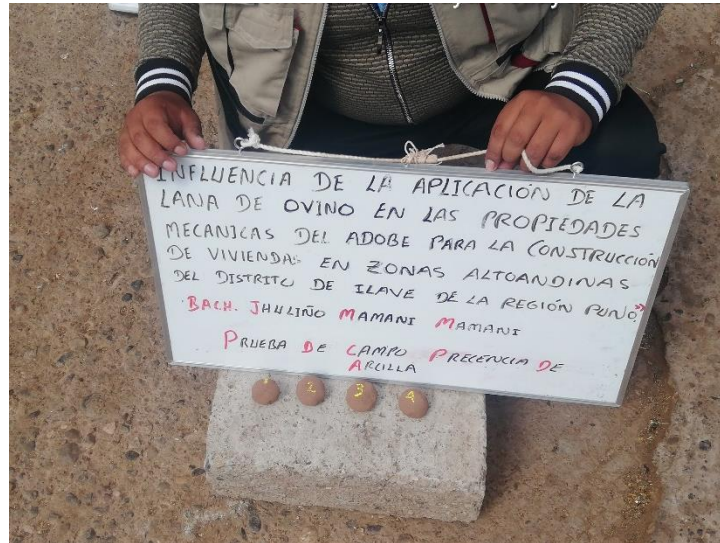 INFLUENCIA DE LA APLICACIÓN DE LA
LANA DE OVINO EN LAS PROPIEDADES
MECANICAS DEL ADOBE PARA LA CONSTRUCCIÓN
DE VIVIENDAS EN ZONAS ALTOANDINAS
DEL DISTRITO DE ILAVE DE LA REGIÓN PUNO."
BACH. JHULIÑO MAMANI MAMANI
PRUEBA DE CAMPO PRECENCIA DE
ARCILLA
1 2 3 4